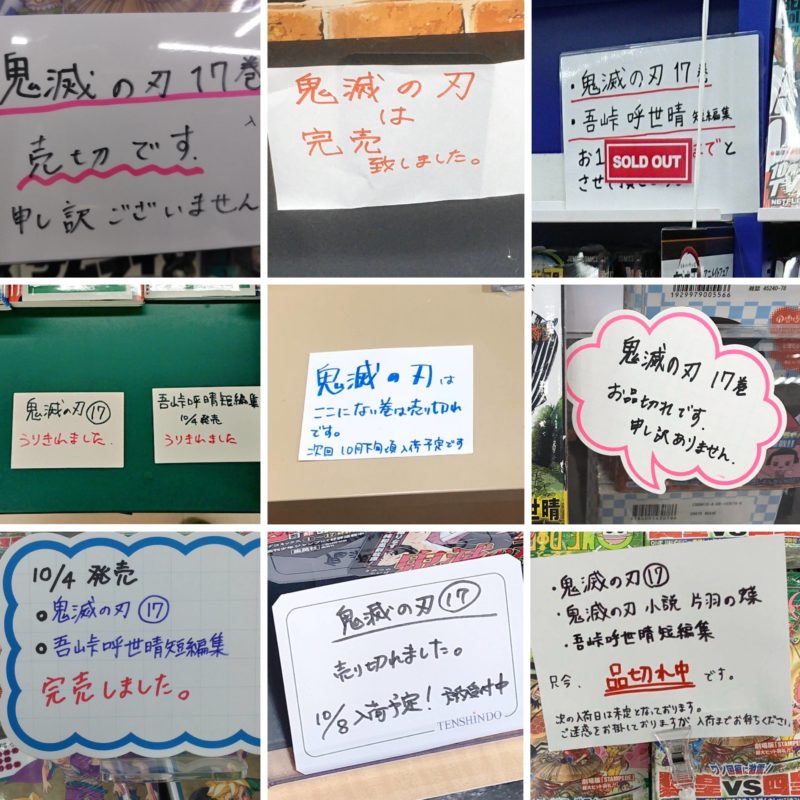 鬼滅の刃 17巻
売切です.
申し訳ございません
鬼滅の刃
は
完売
致しました。
・鬼滅の刃 17巻
・吾峠呼世晴 短編集
お1
までと
SOLD OUT
させて
NETFLIX
鬼滅の刃⑰
うりきれました.
吾峠呼世晴短編集
10/4 発売
うりきれました
鬼滅の刃は
ここにない巻は売り切れ
です。
次回 10月下旬頃入荷予定です
雑誌 45240-70
1929979005566
鬼滅の刃 17巻
お品切れです.
申し訳ありません.
10/4 発売
鬼滅の刃 ⑰
吾峠呼世晴短編集
完売しました。
鬼滅の刃 ⑰
売り切れました。
10/8 入荷予定! 予約受付中
TENSHINDO
・鬼滅の刃⑰
・鬼滅の刃 小説 片羽の蝶
・吾峠呼世晴短編集
只今、品切れ中です。
次の入荷日は未定となっております。
ご迷惑をお掛しておりますが、入荷までお待ちください。
VS